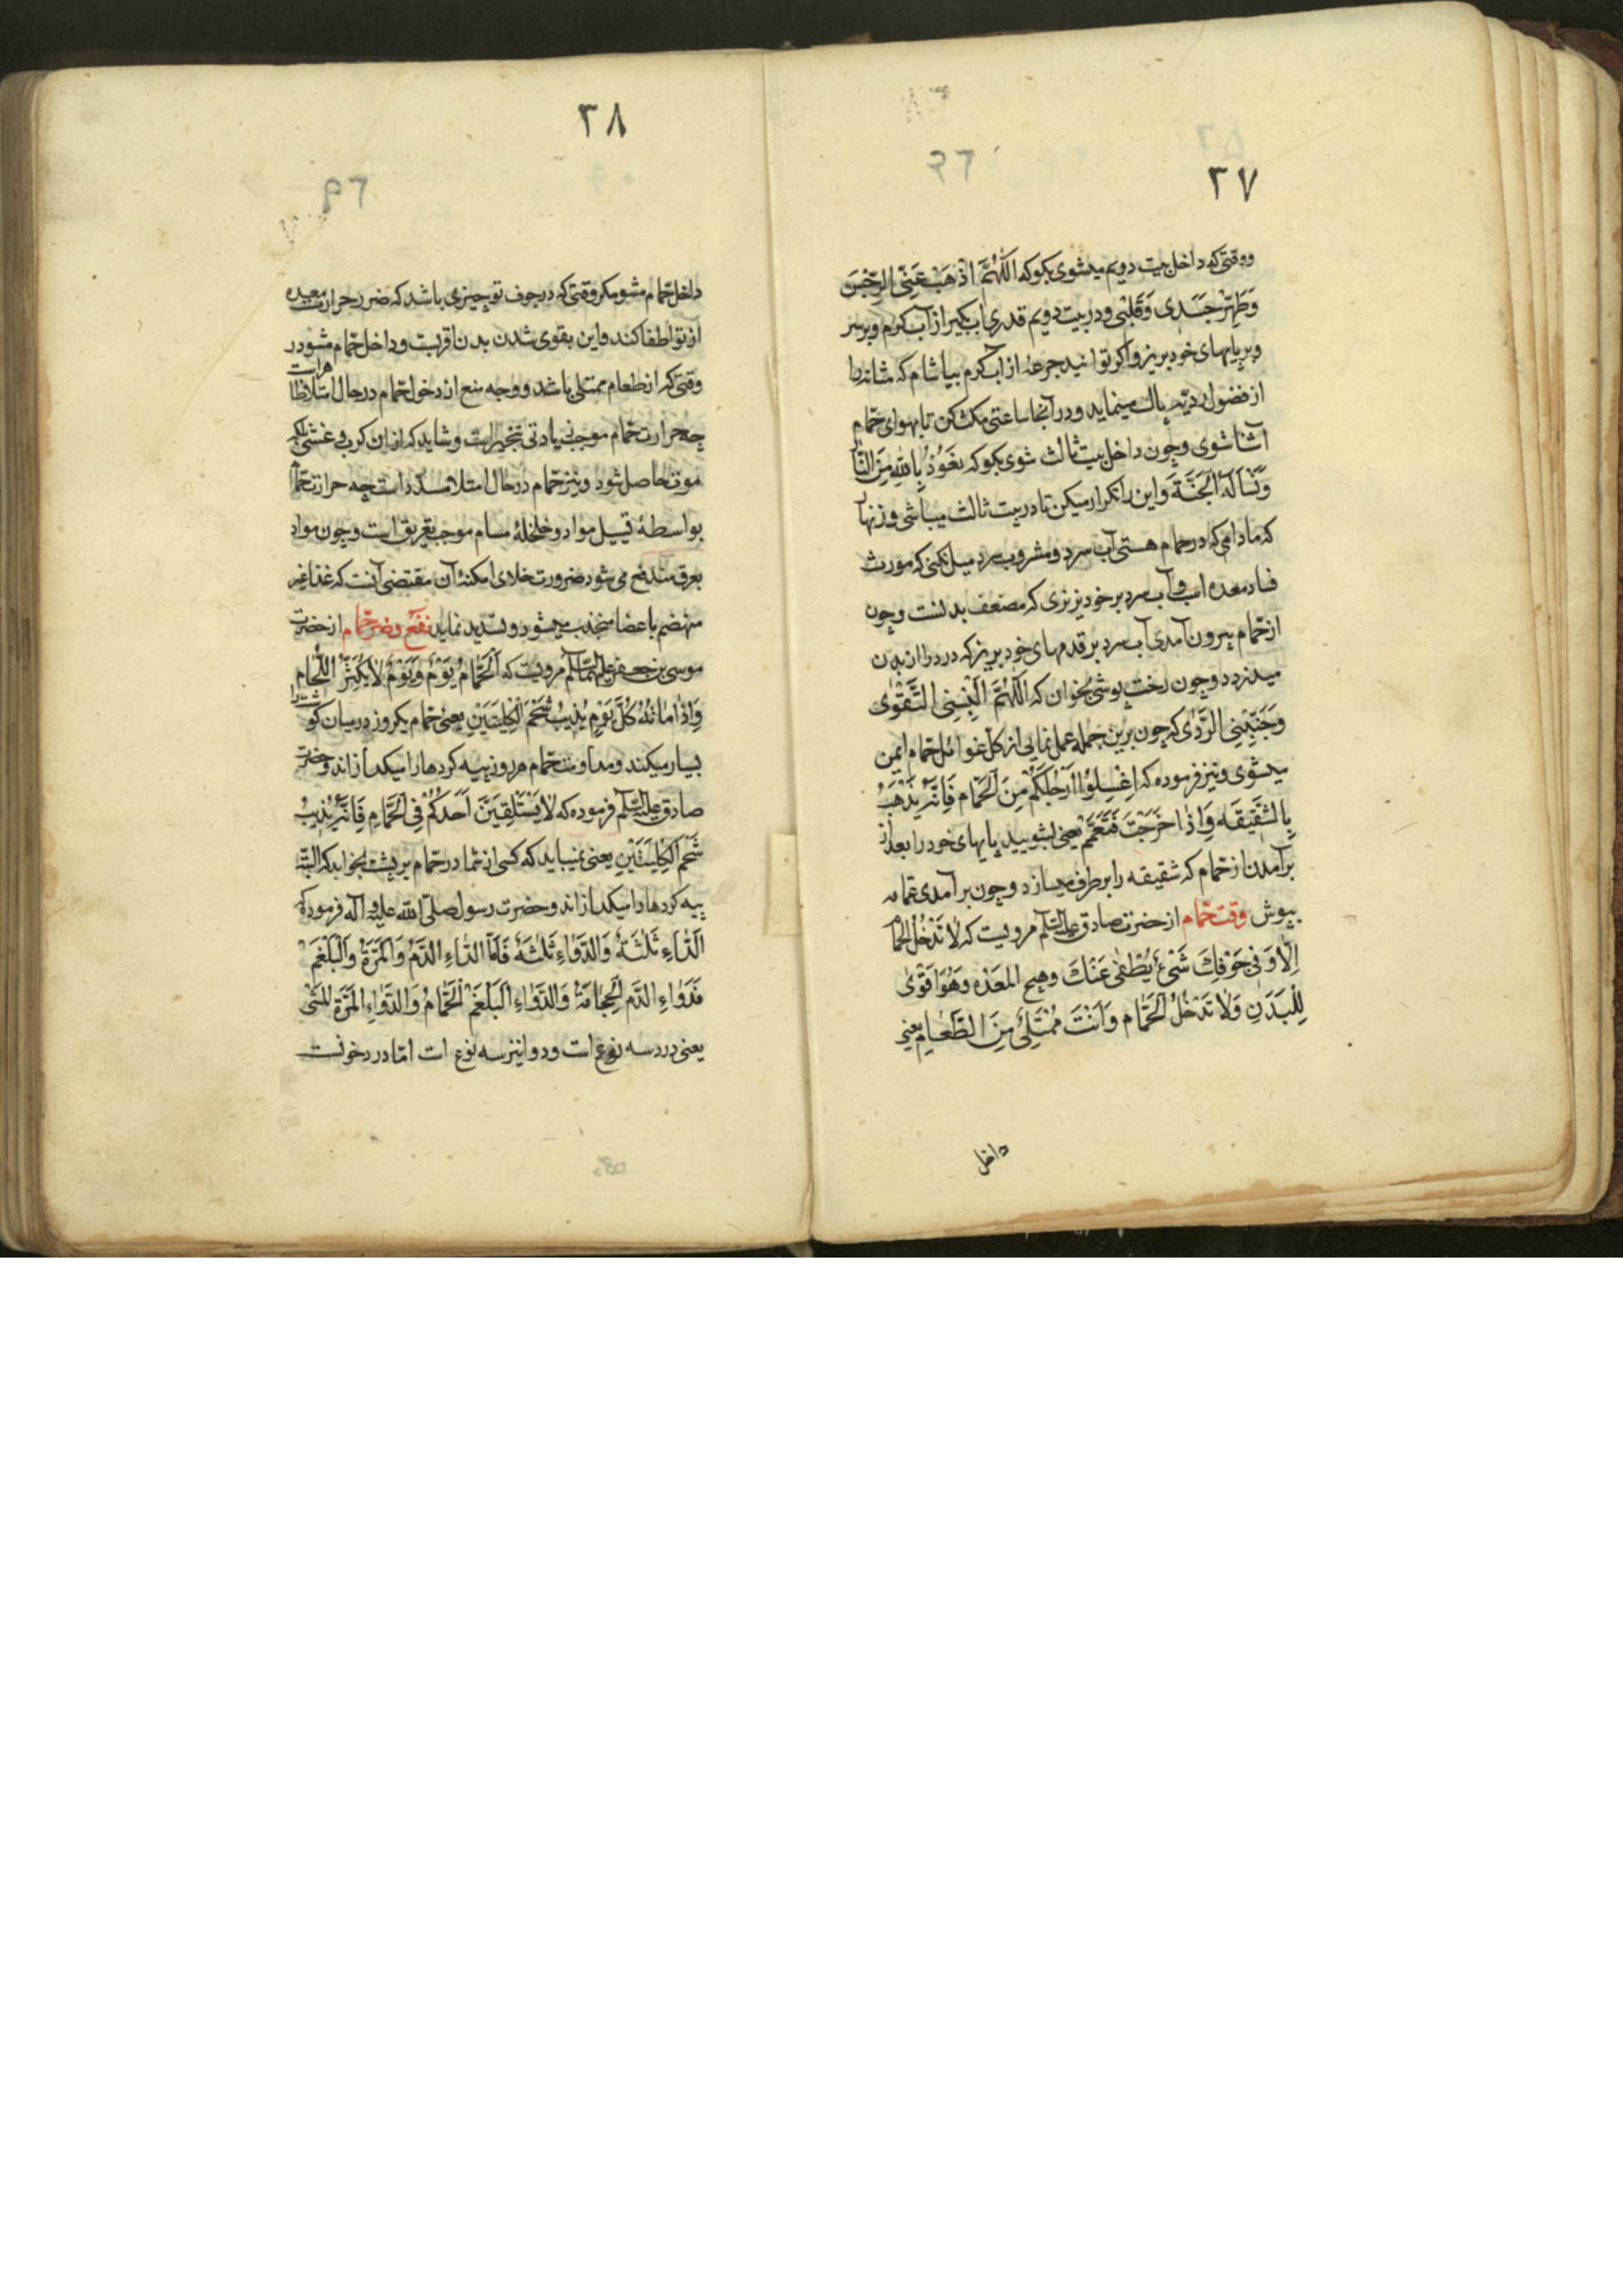 ٣٧
ووقتی که داخل بیت دویم میشوی بکو که اَللّٰهُمَّ اذْهَبْ عَنِّی الرِّجْسَ
وَطَهِّرْ جَسَدِی وَقَلْبِی ودر بیت دویم قدری اب بکیر از آب کرم وبر سر
وبر پایهای خود بریز واکر توانید جرعهٔ از آب کرم بیاشام که مثانه را
از فضول ردیّه پاك مینماید ودر آنجا ساعتی مکث کن تا بهوای حمّام
آشنا شوی وچون داخل بیت ثالث شوی بکو که نَعُوذُ بِاللّٰهِ مِنَ النّار
وَنَسْأَلُهُ الْجَنَّةَ واین را تکرار میکن تا در بیت ثالث میباشی وزنهار
که مادامی که در حمام هستی آب سرد ومشروب سرد میل نکنی که مورث
فساد معده است وآب سرد بر خود نریزی که مضعف بدنست وچون
از حمّام بیرون آمدی آب سرد بر قدمهای خود بریز که درد را از بدن
میدزدد وچون رخت پوشی بخوان که اَللّٰهُمَّ اَلْبِسْنِی التَّقْوٰی
وَجَنِّبْنِی الرَّدٰی که چون برین جمله عمل نمایی از کل غوائل حمّام ایمن
میشوی ونیز فرموده که اِغْسِلُوا اَرْجُلَکُمْ مِنَ الْحَمّام فَاِنَّهُ یَذْهَبُ
بِالشَّقیقَه وَاِذا خَرَجْتَ فَتَعَمَّمْ یعنی بشویید پایهای خود را بعد از
برآمدن از حمّام که شقیقه را برطرف میسازد وچون برآمدی عمّامه
بپوش وقت حمّام از حضرت صادق علیه السّلم مرویست که لا تَدْخُلِ الْحَمّام
اِلّا وَفی جَوْفِكَ شَیْءٌ یُطْفی عَنْكَ وهیج المعده وَهُوَ اَقْوٰی
لِلْبَدَنِ وَلا تَدْخُلِ الْحَمّام وَاَنْتَ مُمْتَلِئٌ مِنَ الطَّعٰامِ یعنی
داخل
٣٨
داخل حمّام مشو مکر وقتی که در جوف تو چیزی باشد که ضرر حرارت معده
از تو اطفا کند واین بقوی شدن بدن اقربست وداخل حمّام مشو در
وقتی که از طعام ممتلی باشد ووجه منع از دخول حمّام در حال امتلا ظاهراست
چه حرارت حمّام موجب زیادتی تبخیر است وشاید که از ان کرب وغشی بلکه
موت حاصل شود ونیز حمّام در حال امتلا مسدّد است چه حرارت حمّام
بواسطهٔ تسییل مواد وخلخلهٔ مسام موجب تعریق است وچون مواد
بعرق مندفع می شود ضرورت خلای امکنهٔ آن مقتضی آنست که غذا غیر
منهضم باعضا منجذب میشود وتسدید نماید نفع وضرّ حمّام از حضرت
موسی بن جعفر علیهما السّلم مرویست که اَلْحَمّامُ یَوْمٌ وَیَوْمٌ لا یُکْثِرُ اللَّحْام
وَاِدْمانُهُ کُلَّ یَوْمٍ یُذیبُ شَحْمَ الْکِلْیَتَیْنِ یعنی حمّام یکروز در میان کوشت را
بسیار میکند ومداومت حمّام هر روز پیه کردها را میکدازاند وحضرت
صادق علیه السّلم فرموده که لا یَسْتَلْقِیَنَّ اَحَدُکُمْ فِی الْحَمّامِ فَاِنَّهُ یُذیبُ
شَحْمَ الْکِلْیَتَیْنِ یعنی نمیباید که کسی از شما در حمّام بر پشت بخوابد که البتّه
پیه کردها را میکدازاند وحضرت رسول صلّی اللّٰه علیه وآله فرموده که
اَلدّاءِ ثَلٰثَةٌ وَالدَّوَاءِ ثَلٰثَهٌ فَاَمَّا الدّاءِ الدَّمُ وَالْمَرَّةُ وَالْبَلْغَمْ
فَدَوٰاءِ الدَّمِ الْحِجامَةُ وَالدَّوٰاءِ الْبَلْغَمْ الْحَمّامُ وَالدَّوٰاءِ الْمَرَّةِ الْمَشْی
یعنی درد سه نوع است ودوا نیز سه نوع است امّا درد خونست